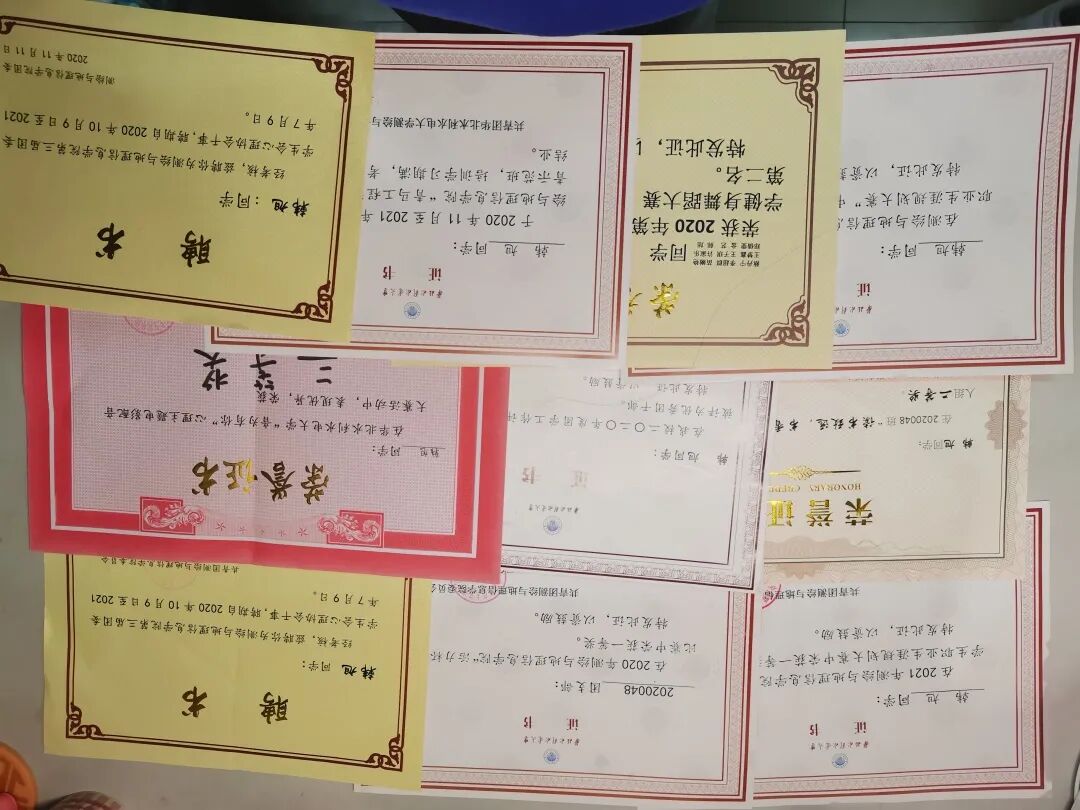 华北水利水电大学
证 书
韩 旭 同学：
在 2021 年测绘与地理信息学院
学生职业生涯规划大赛中荣获一等
特发此证，以资鼓励。
共青团测绘与地理信
华北水利水电大学
证 书
2020048 团支部：
在 2020 年测绘与地理信息学院“
比赛中荣获一等奖。
特发此证，以资鼓励。
共青团测绘与地理信息学院委员会
聘 书
韩旭 同学：
经考核，兹聘你为测绘与地理信息学院第三届团委
学生会心理协会干事，聘期自 2020 年 10 月 9 日至 2021
年 7 月 9 日。
共青团测绘与地理信息学院委员会
荣誉证
HONORARY CREDE
韩旭同学：
在2020048班“
人组二等奖。
华北水利水电大学
证 书
韩 旭同学：
在我校二〇二〇年度团学工作评
被评为优秀团干部。
特发此证，以资鼓励。
荣誉证书
韩旭 同学：
在华北水利水电大学“音为有你”心理主题电影配音
大赛活动中，表现优异，荣获
三等奖
华北水利水电大学
证 书
韩 旭 同学：
在测绘与地理信息学院“
职业生涯规划大赛”中
特发此证，以资鼓
荣誉
同学
荣获 2020 年第
学健身舞蹈大赛
第二名。
特发此证，
华北水利水电大学
证 书
韩 旭 同学：
于 2020 年 11 月至 2021 年
绘与地理信息学院“青马工程
骨示范班，培训学习期满，考
结业。
共青团华北水利水电大学测绘与
聘 书
韩旭：同学
经考核，兹聘你为测绘与地理信息学院第三届团委
学生会心理协会干事，聘期自 2020 年 10 月 9 日至 2021
年 7 月 9 日。
测绘与地理信息学院团委
2020 年 11 月 11 日